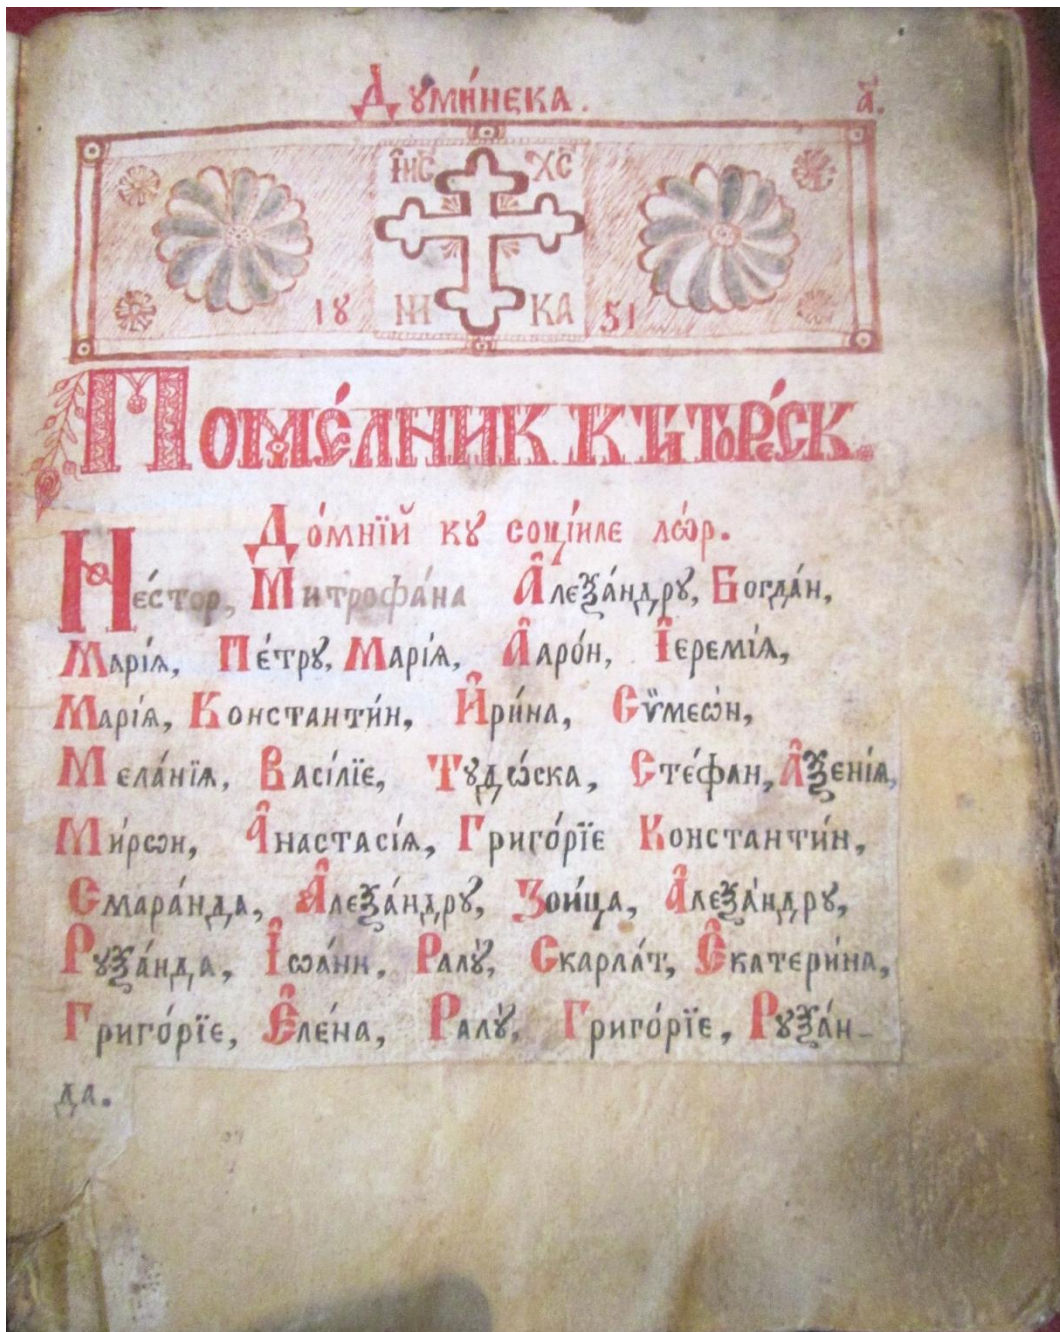 Дꙋмі́нека. а҃.
І҆ис҃ Х҃С
18 НИ КА 51
Поме́лник Кти́торе́ск
До́мнїй кꙋ соці́иле лѡ́р.
Не́стор, Митрофа́на А҆леѯа́ндрꙋ, Богда́н,
Марі́ѧ, Пе́трꙋ, Марі́ѧ, А҆аро́н, І҆еремі́ѧ,
Марі́ѧ, Константи́н, И҆ри́на, Сѷмеѡ́н,
Мела́нїѧ, Васі́лїе, Тꙋдѡ́ска, Сте́фан, А҆ѯені́ѧ,
Ми́рѡн, А҆настасі́ѧ, Григо́рїе Константи́н,
Смара́нда, А҆леѯа́ндрꙋ, Зои́ца, А҆леѯа́ндрꙋ,
Рꙋѯа́нда, І҆ѡа́нн, Ралꙋ̀, Скарла́т, Є҆катери́на,
Григо́рїе, Є҆ле́на, Ралꙋ̀, Григо́рїе, Рꙋѯа́н-
да.